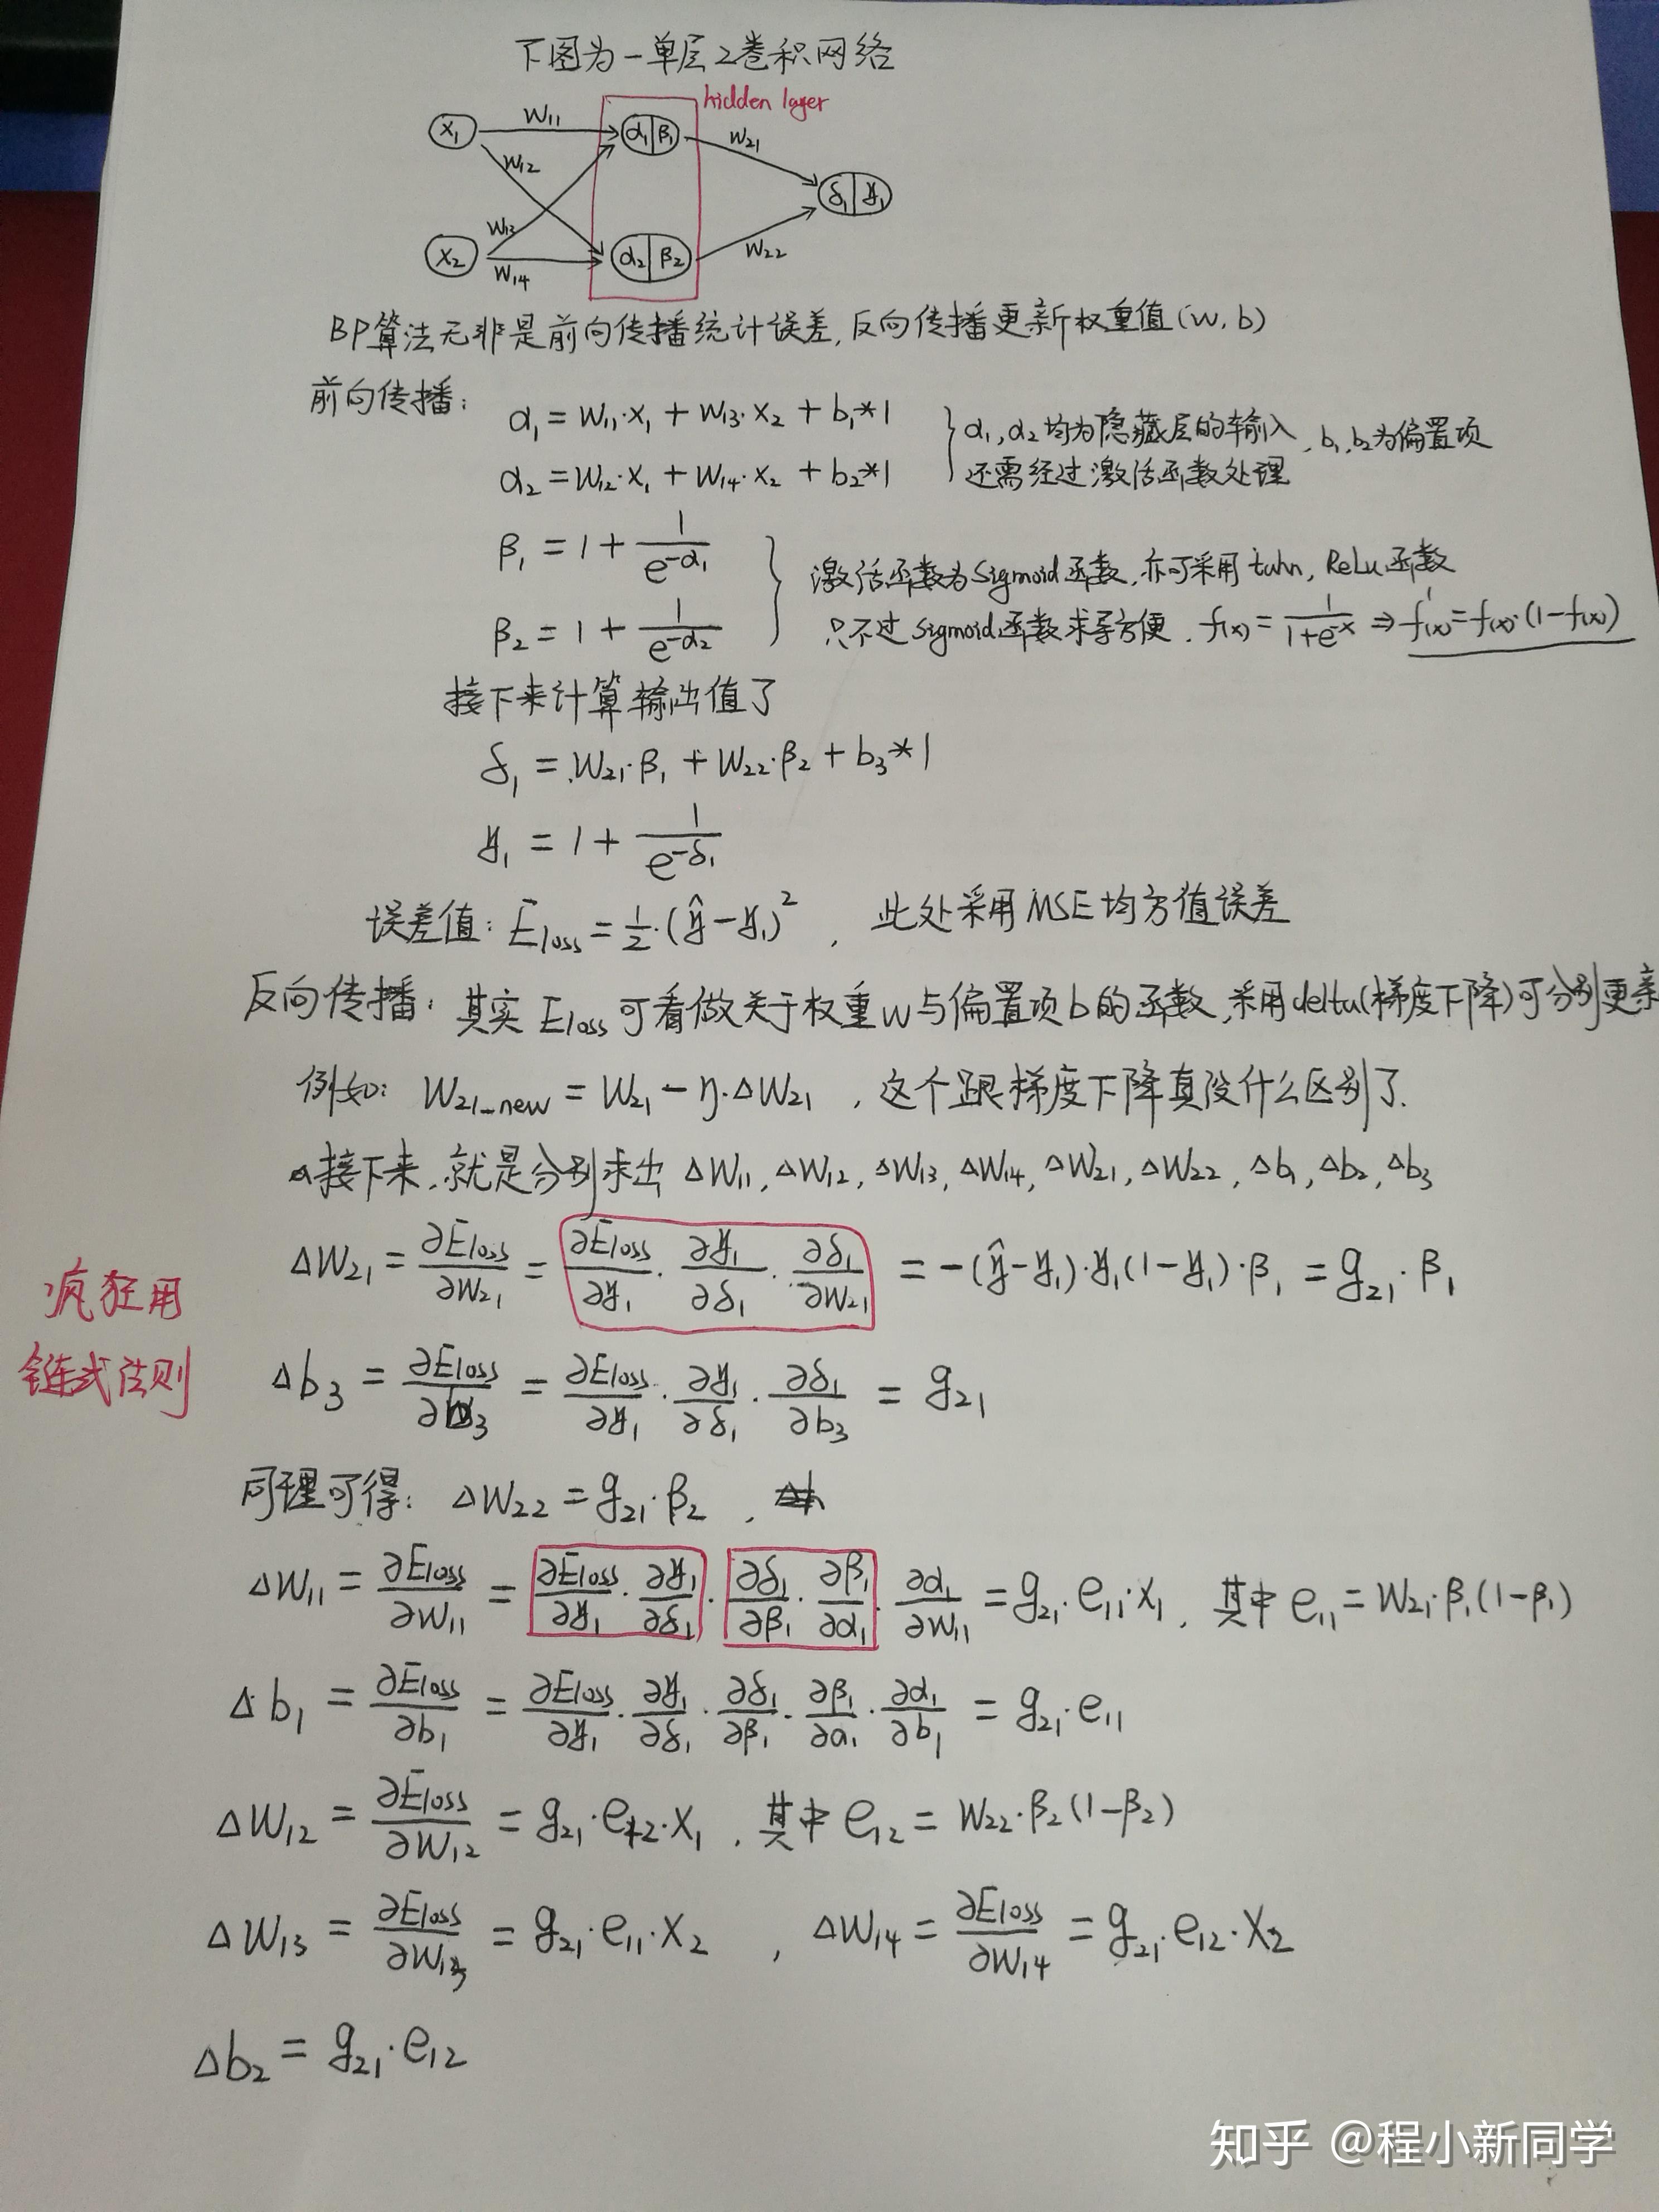 下图为一单层2卷积网络
hidden layer
x₁ W₁₁ α₁ β₁ W₂₁
W₁₂
δ₁ y₁
W₁₃
x₂ W₁₄ α₂ β₂ W₂₂
BP算法无非是前向传播统计误差,反向传播更新权重值(w,b)
前向传播: α₁ = W₁₁·x₁ + W₁₃·x₂ + b₁*1
α₂ = W₁₂·x₁ + W₁₄·x₂ + b₂*1
α₁,α₂均为隐藏层的输入,b₁,b₂为偏置项
还需经过激活函数处理
β₁ = 1 + 1/e^(-α₁)
β₂ = 1 + 1/e^(-α₂)
激活函数为Sigmoid函数,亦可采用tahn, ReLu函数
只不过Sigmoid函数求导方便, f(x) = 1/(1+e^-x) ⇒ f'(x) = f(x)·(1-f(x))
接下来计算输出值了
δ₁ = W₂₁·β₁ + W₂₂·β₂ + b₃*1
y₁ = 1 + 1/e^(-δ₁)
误差值: Eloss = 1/2·(ŷ-y₁)², 此处采用MSE均方值误差
反向传播: 其实Eloss可看做关于权重w与偏置项b的函数,采用delta(梯度下降)可分别更新
例如: W₂₁_new = W₂₁ - η·ΔW₂₁ , 这个跟梯度下降真没什么区别了.
接下来,就是分别求出 ΔW₁₁, ΔW₁₂, ΔW₁₃, ΔW₁₄, ΔW₂₁, ΔW₂₂, Δb₁, Δb₂, Δb₃
疯狂用
链式法则
ΔW₂₁ = ∂Eloss/∂W₂₁ = ∂Eloss/∂y₁ · ∂y₁/∂δ₁ · ∂δ₁/∂W₂₁ = -(ŷ-y₁)·y₁(1-y₁)·β₁ = g₂₁·β₁
Δb₃ = ∂Eloss/∂b₃ = ∂Eloss/∂y₁ · ∂y₁/∂δ₁ · ∂δ₁/∂b₃ = g₂₁
同理可得: ΔW₂₂ = g₂₁·β₂ ,
ΔW₁₁ = ∂Eloss/∂W₁₁ = ∂Eloss/∂y₁ · ∂y₁/∂δ₁ · ∂δ₁/∂β₁ · ∂β₁/∂α₁ · ∂α₁/∂W₁₁ = g₂₁·e₁₁·x₁ , 其中 e₁₁ = W₂₁·β₁(1-β₁)
Δb₁ = ∂Eloss/∂b₁ = ∂Eloss/∂y₁ · ∂y₁/∂δ₁ · ∂δ₁/∂β₁ · ∂β₁/∂α₁ · ∂α₁/∂b₁ = g₂₁·e₁₁
ΔW₁₂ = ∂Eloss/∂W₁₂ = g₂₁·e₁₂·x₁ , 其中 e₁₂ = W₂₂·β₂(1-β₂)
ΔW₁₃ = ∂Eloss/∂W₁₃ = g₂₁·e₁₁·x₂ , ΔW₁₄ = ∂Eloss/∂W₁₄ = g₂₁·e₁₂·x₂
Δb₂ = g₂₁·e₁₂
知乎 @程小新同学